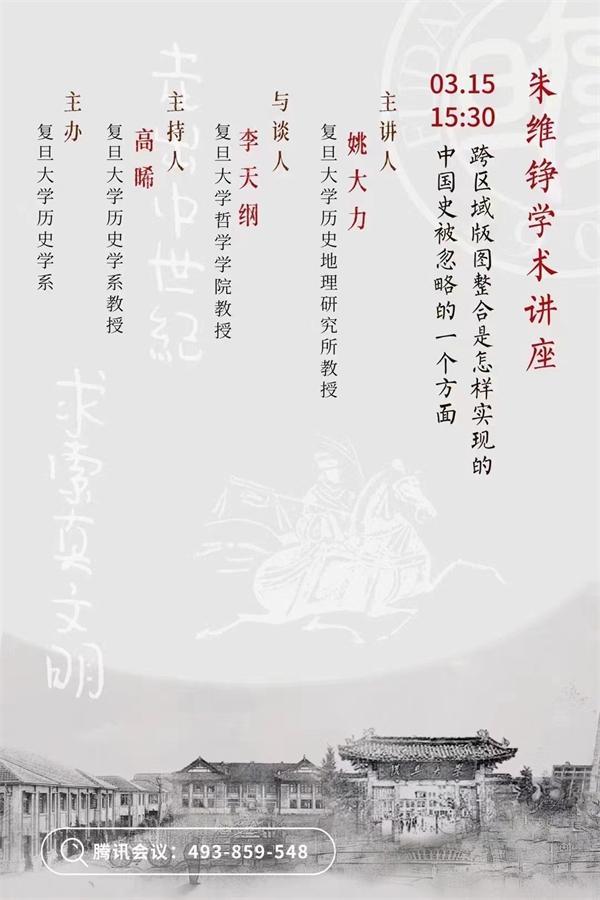 朱维铮学术讲座
03.15
15:30
跨区域版图整合是怎样实现的
中国史被忽略的一个方面
主讲人
姚大力
复旦大学历史地理研究所教授
与谈人
李天纲
复旦大学哲学学院教授
主持人
高晞
复旦大学历史学系教授
主办
复旦大学历史学系
走出中世紀
求索真文明
复旦大学
腾讯会议：493-859-548